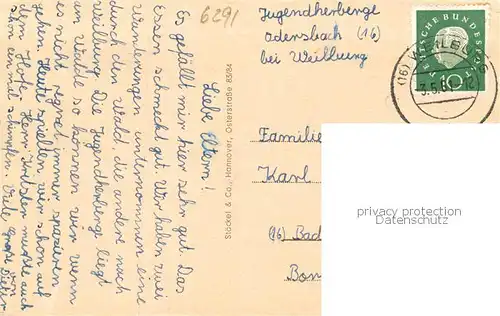 6291
Jugendherberge
Odersbach (16)
bei Weilburg
DEUTSCHE BUNDESPOST
10
(16) WEILBURG
3.5.61
Liebe Eltern!
Es gefällt mir hier sehr gut. Das
Essen schmeckt gut. Wir haben zwei
Wanderungen unternommen eine
durch den Wald, die andere nach
Weilburg. Die Jugendherberge liegt
am Walde so können wir wenn
es nicht regnet immer spazieren
gehen. Heute spielten wir schon auf
dem Hofe. Herr mußte auch
schon einmal schimpfen. Viele Grüße von
Dieter
Stöckel & Co., Hannover, Osterstraße 83/84
Familie
Karl
(16) Bad
privacy protection
DATENSCHUTZ